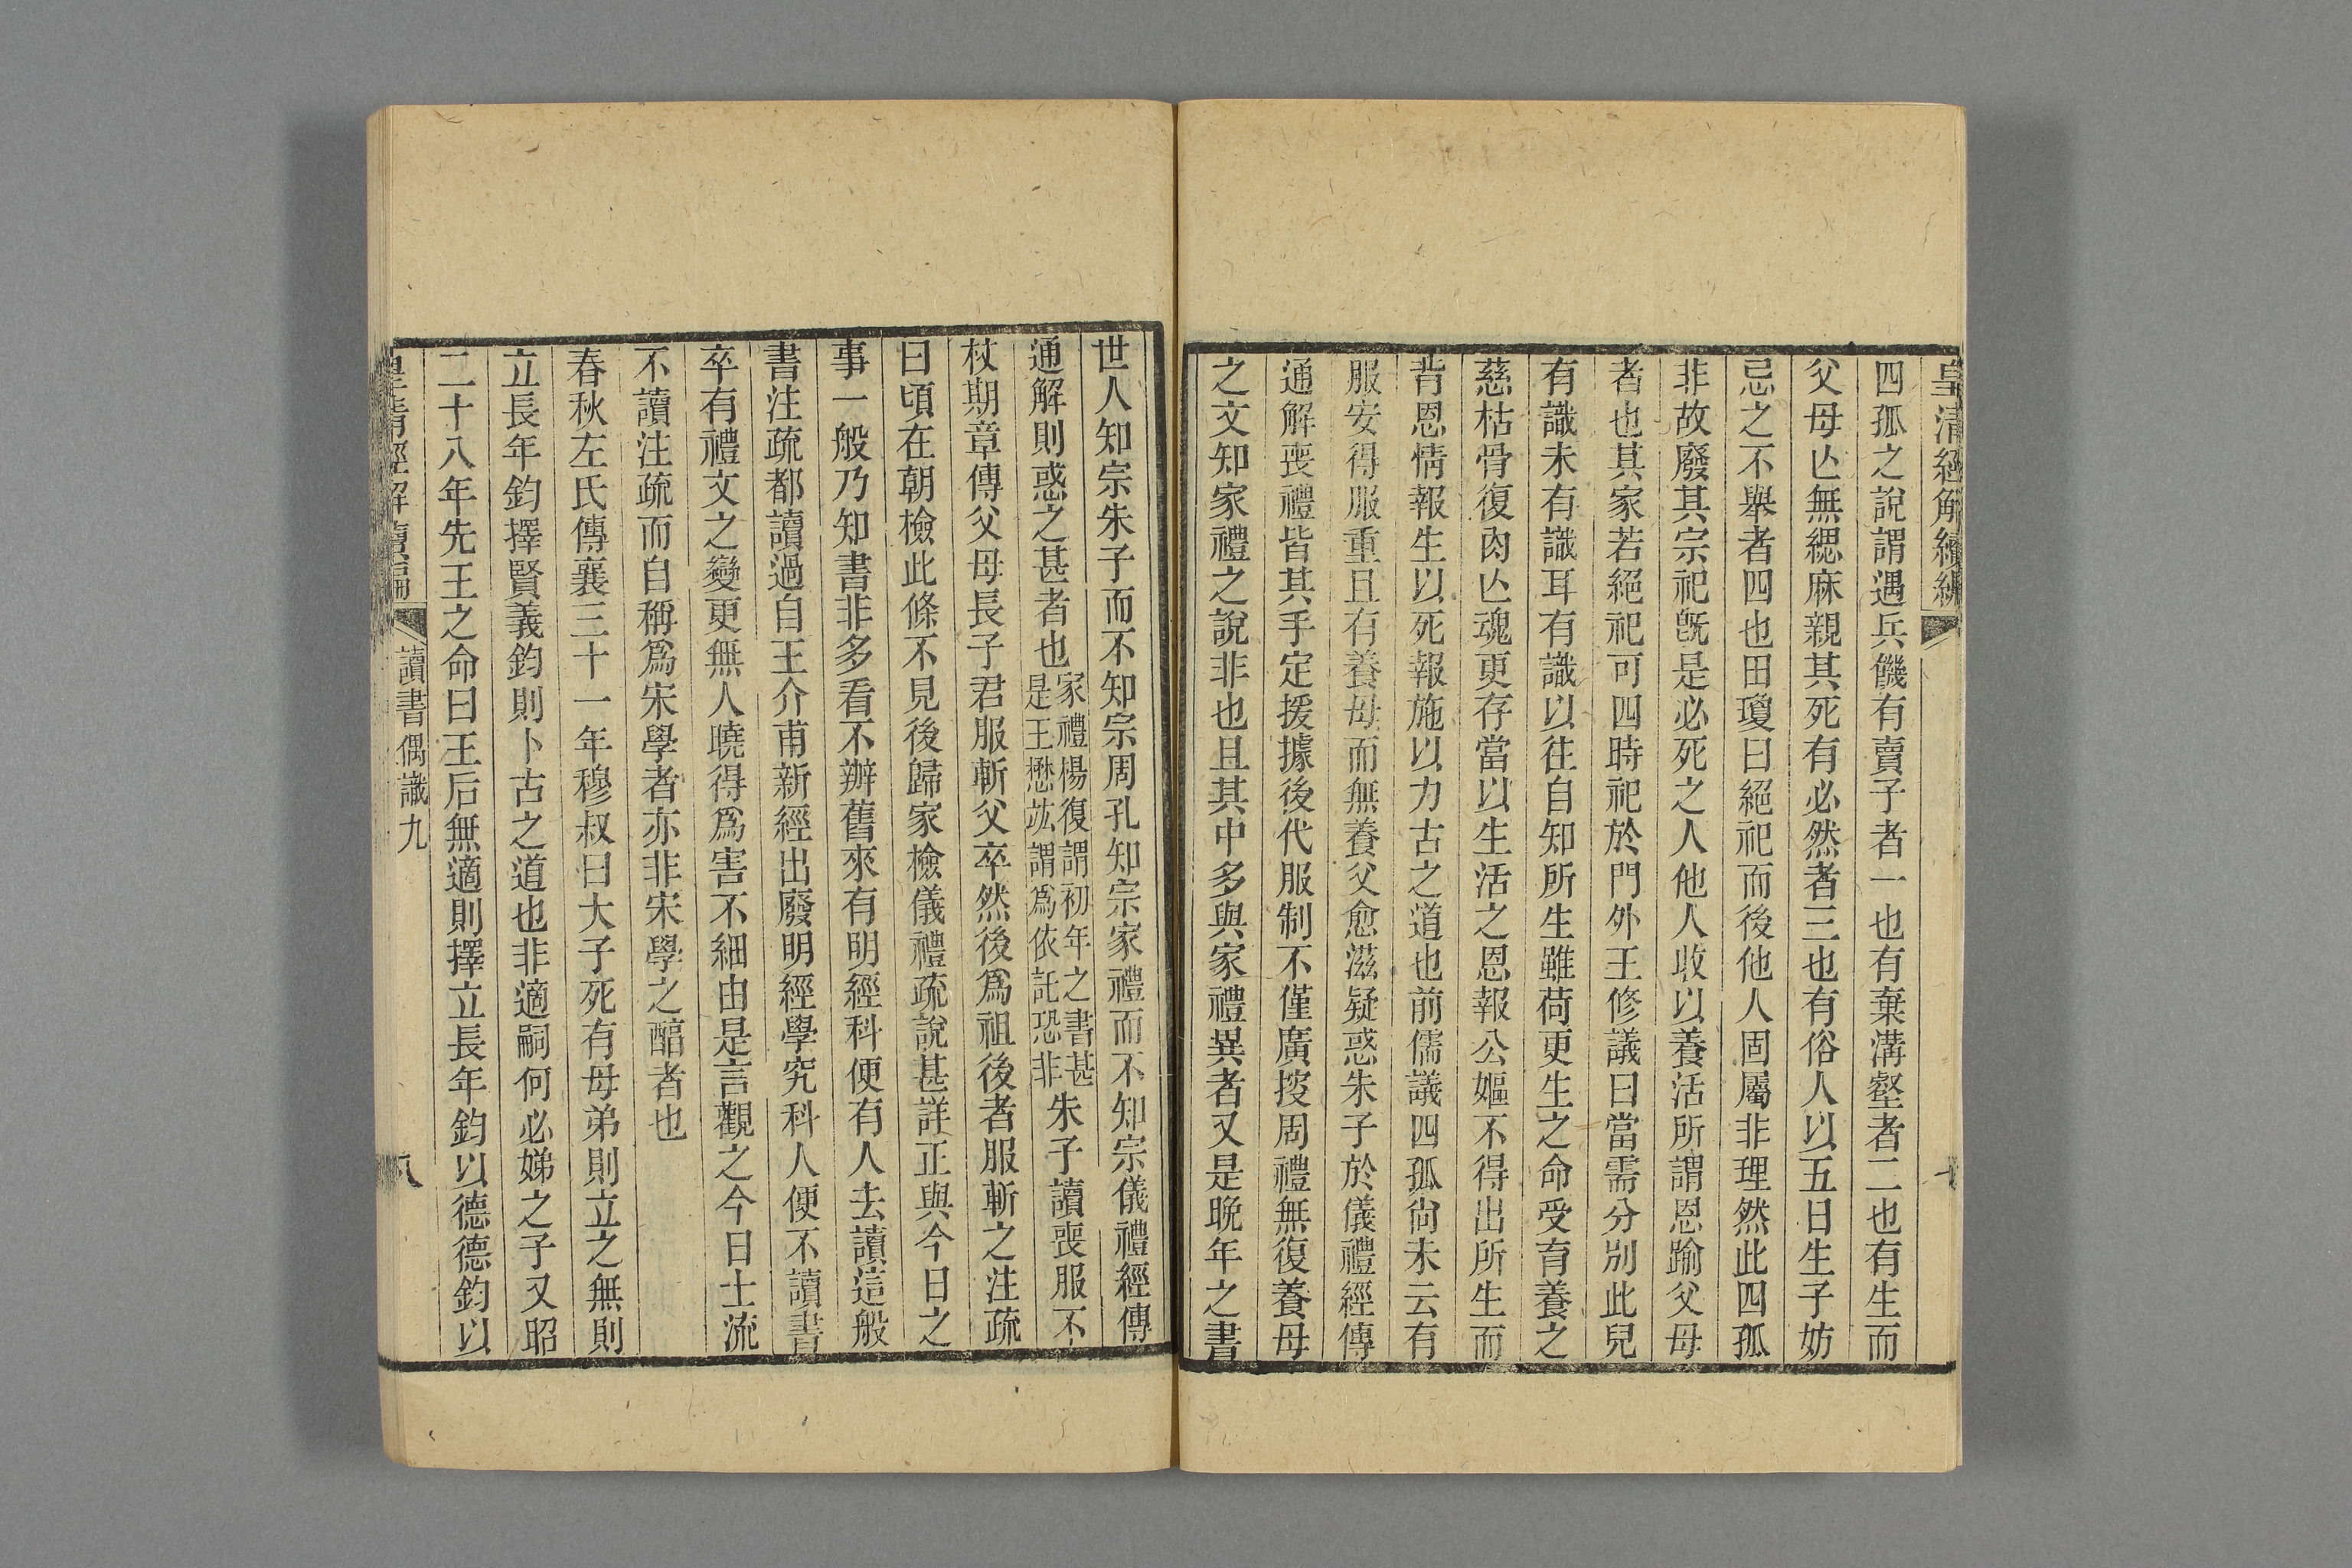 皇清經解續編
四孤之說謂遇兵饑有賣子者一也有棄溝壑者二也有生而
父母亾無緦麻親其死有必然者三也有俗人以五日生子妨
忌之不舉者四也田瓊曰絕祀而後他人固屬非理然此四孤
非故廢其宗祀旣是必死之人他人收以養活所謂恩踰父母
者也其家若絕祀可四時祀於門外王修議曰當需分別此兒
有識未有識耳有識以往自知所生雖荷更生之命受育養之
慈枯骨復肉亾魂更存當以生活之恩報公嫗不得出所生而
背恩情報生以死報施以力古之道也前儒議四孤尙未云有
服安得服重且有養母而無養父愈滋疑惑朱子於儀禮經傳
通解喪禮皆其手定援據後代服制不僅廣按周禮無復養母
之文知家禮之說非也且其中多與家禮異者又是晚年之書
世人知宗朱子而不知宗周孔知宗家禮而不知宗儀禮經傳
通解則惑之甚者也家禮楊復謂初年之書甚是王懋竑謂爲依託恐非朱子讀喪服不
杖期章傳父母長子君服斬父卒然後爲祖後者服斬之注疏
曰頃在朝檢此條不見後歸家檢儀禮疏說甚詳正與今日之
事一般乃知書非多看不辦舊來有明經科便有人去讀這般
書注疏都讀過自王介甫新經出廢明經學究科人便不讀書
卒有禮文之變更無人曉得爲害不細由是言觀之今日士流
不讀注疏而自稱爲宋學者亦非宋學之醇者也
春秋左氏傳襄三十一年穆叔曰大子死有母弟則立之無則
立長年鈞擇賢義鈞則卜古之道也非適嗣何必娣之子又昭
二十八年先王之命曰王后無適則擇立長年鈞以德德鈞以
皇清經解續編
讀書偶識九
八